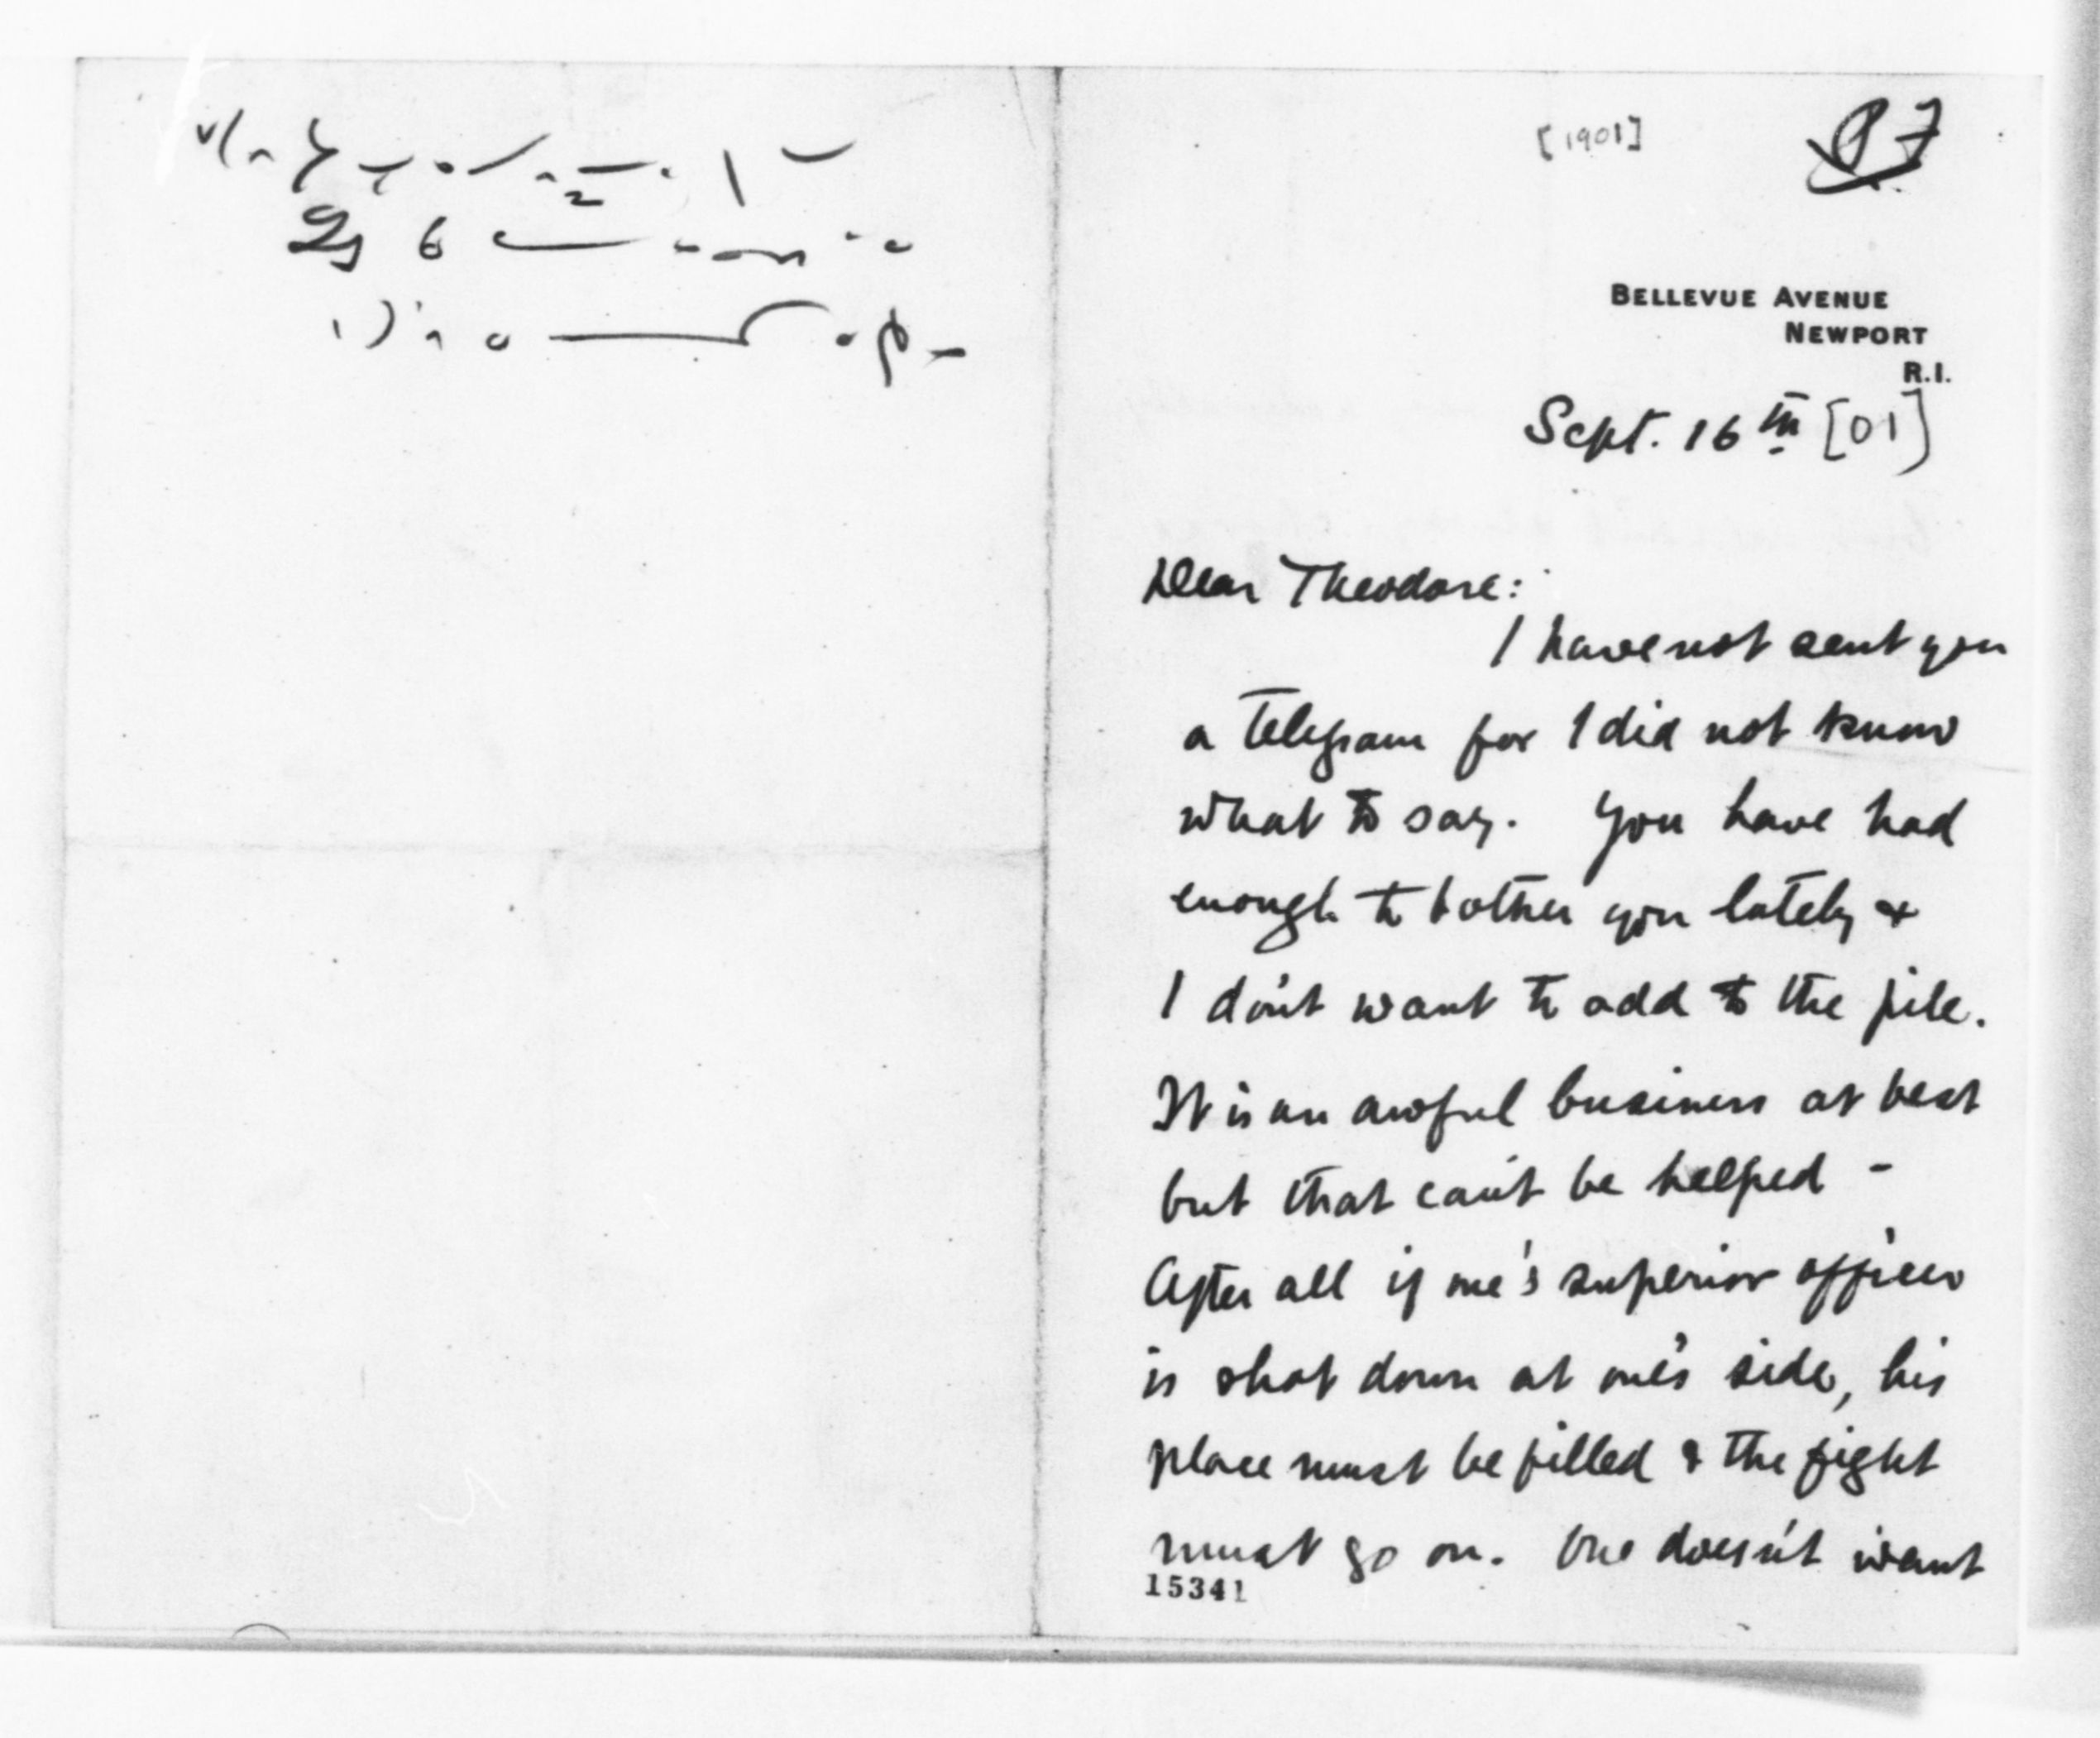 [1901]
BELLEVUE AVENUE
NEWPORT
R.I.
Sept. 16th [01]
Dear Theodore:
I have not sent you
a telegram for I did not know
what to say. You have had
enough to bother you lately &
I don't want to add to the pile.
It is an awful business at best
but that can't be helped -
After all if one's superior officer
is shot down at one's side, his
place must be filled & the fight
must go on. One doesn't want
15341